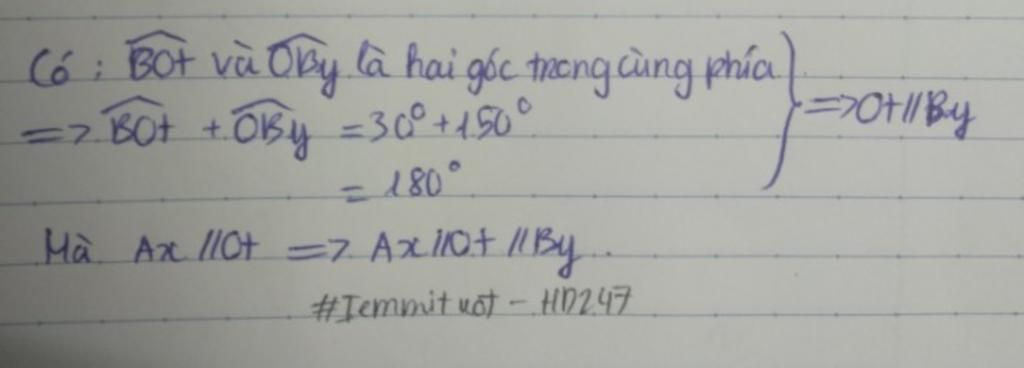 Có : BOt và OBy là hai góc trong cùng phía
=> BOt + OBy = 30° + 150°
= 180°
=> Ot // By
Mà Ax // Ot => Ax // Ot // By.
#Iemmituot - HD247